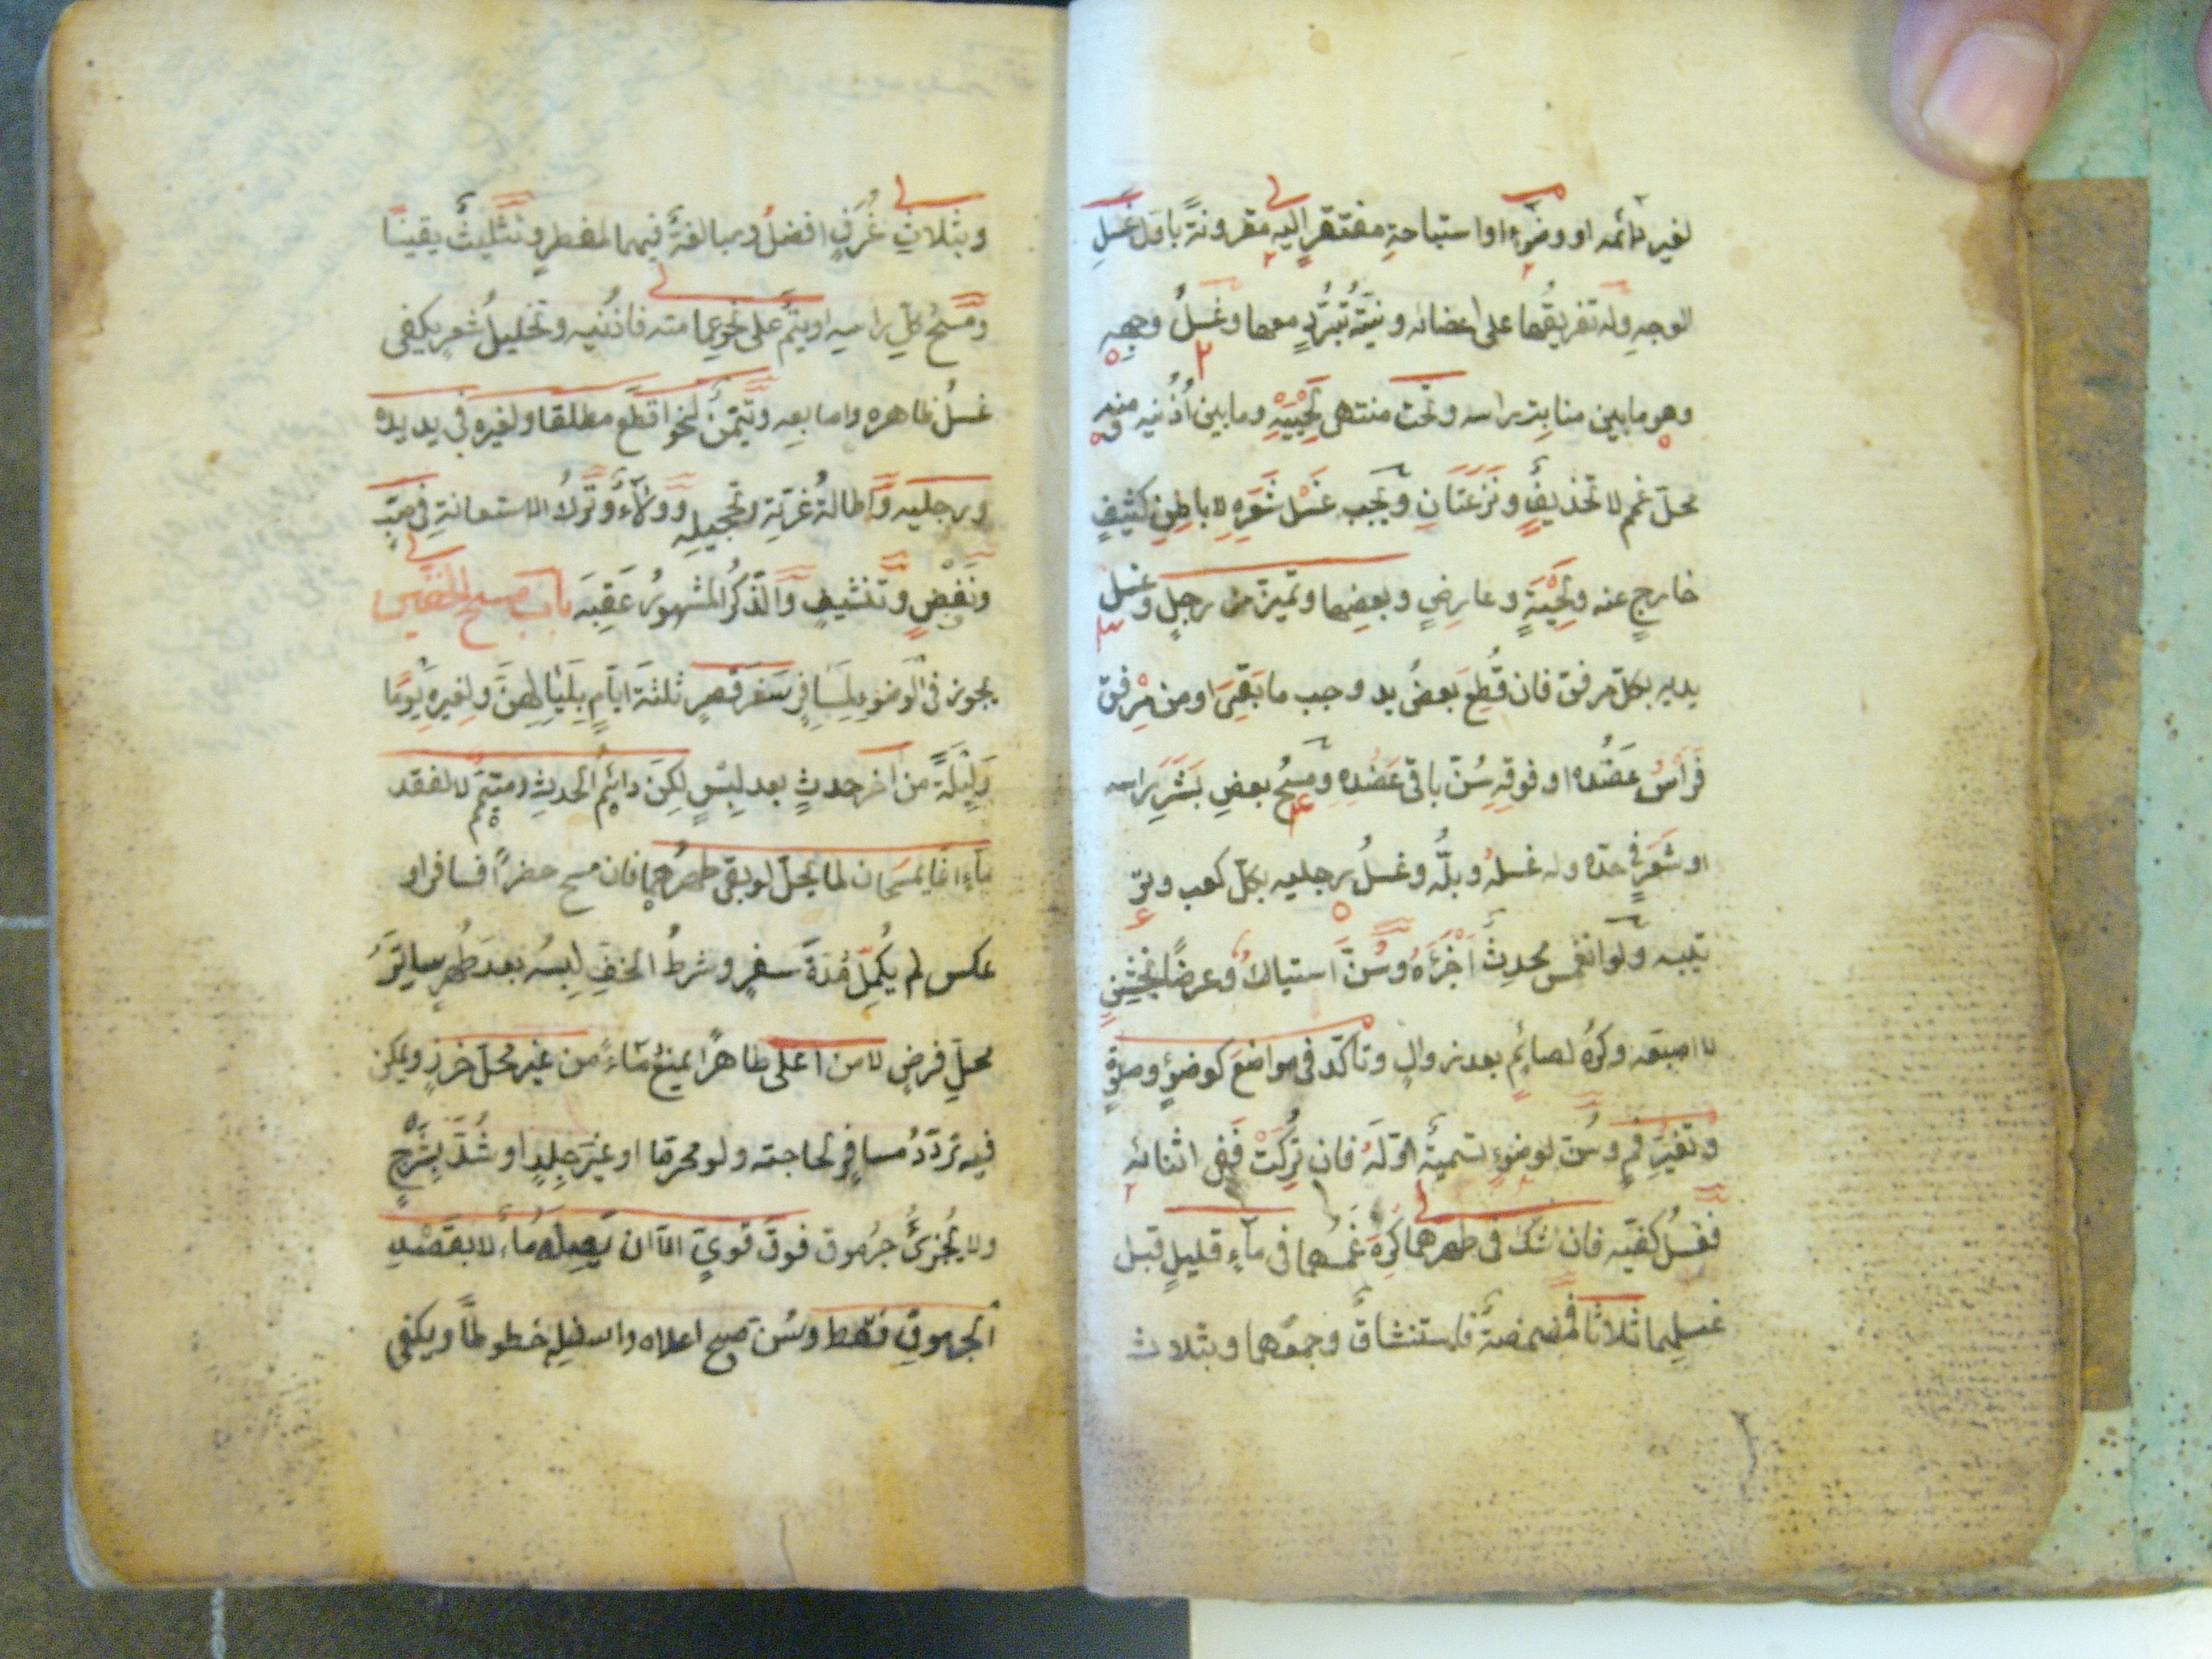 لغير دائمه او وضوء او استباحة مفتقر اليه مقرونة باول غسل
الوجه وله تفريقها على اعضائه ونية تبرد معها وغسل وجهه
وهو ما بين منابت راسه وتحت منتهى لحييه وما بين اذنيه فمنه
محل غمم لا تحذيف ونزعتان ويجب غسل شعره لا باطن كثيف
خارج عنه ولحية وعارض وبعضها وتميز من رجل وغسل
يديه بكل مرفق فان قطع بعض يد وجب ما بقي او من مرفق
فراس عضده او فوقه سن باقي عضده ومسح بعض بشر راسه
او شعر في حده وله غسله وبله وغسل رجليه بكل كعب وتر
تيبه ولو انغمس محدث اجزءه وسن استياك وعرضا بخشن
لا اصبعه وكره لصائم بعد زوال وتاكد في مواضع كوضوء وصلوة
وتغير فم وسن لوضوء تسمية اوله فان تركت ففي اثنائه
فغسل كفيه فان شك في طهرهما كره غمسهما في ماء قليل قبل
غسلهما ثلاثا فمضمضة فاستنشاق وجمعهما وبثلاث
وبثلاث غرف افضل ومبالغة فيهما لمفطر وتثليث يقينا
ومسح كل راسه او يتم على نحو عمامته فاذنيه وتخليل شعر يكفي
غسل ظاهره واصابعه وتيمن لنحو اقطع مطلقا ولغيره في يديه
ورجليه واطالة غرته وتحجيله وولاء وترك الاستعانة في صب
ونفض وتنشيف والذكر المشهور عقبه باب مسح الخفين
يجوز في الوضوء لمسافر سفر قصر ثلثة ايام بلياليهن ولغيره يوما
وليلة من اخر حدث بعد لبس لكن دائم الحدث ومتيمم لا لفقد
ماء انما يمسحان لما يحل لو بقي طهرهما فان مسح حضرا فسافر او
عكس لم يكمل مدة سفر وشرط الخف لبسه بعد طهر ساتر
محل فرض لا من اعلى طاهرا يمنع ماء من غير محل خرز ويمكن
فيه تردد مسافر لحاجته ولو محرما او غير جلد او شد بشرج
ولا يجزئ جرموق فوق قوي الا ان يصله ماء لا بقصد
الجرموق فقط وسن مسح اعلاه واسفله خطوطا ويكفي